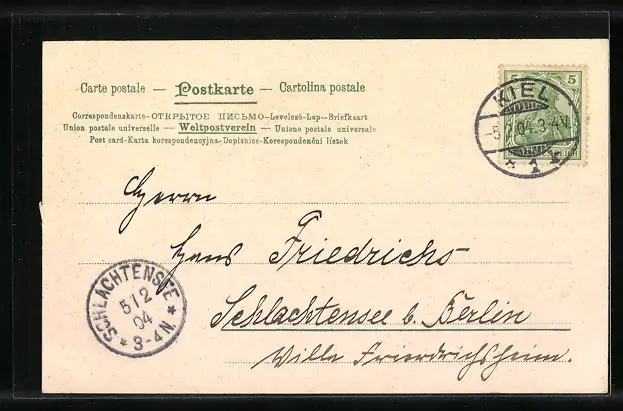 Carte postale — Postkarte — Cartolina postale
Correspondenzkarte-ОТКРЫТОЕ ПИСЬМО-Levelező-Lap-Briefkaart
Union postale universelle — Weltpostverein — Unione postale universale
Post card-Karta korespondencyjna-Dopisnice-Korespondenční lístek
5 5
REICH
KIEL
04.3-4N.
* 1 *
Herrn
Hans Friedrichs
Schlachtensee b. Berlin
Villa Frierdrichsheim.
* SCHLACHTENSEE *
512
04
3-4N.